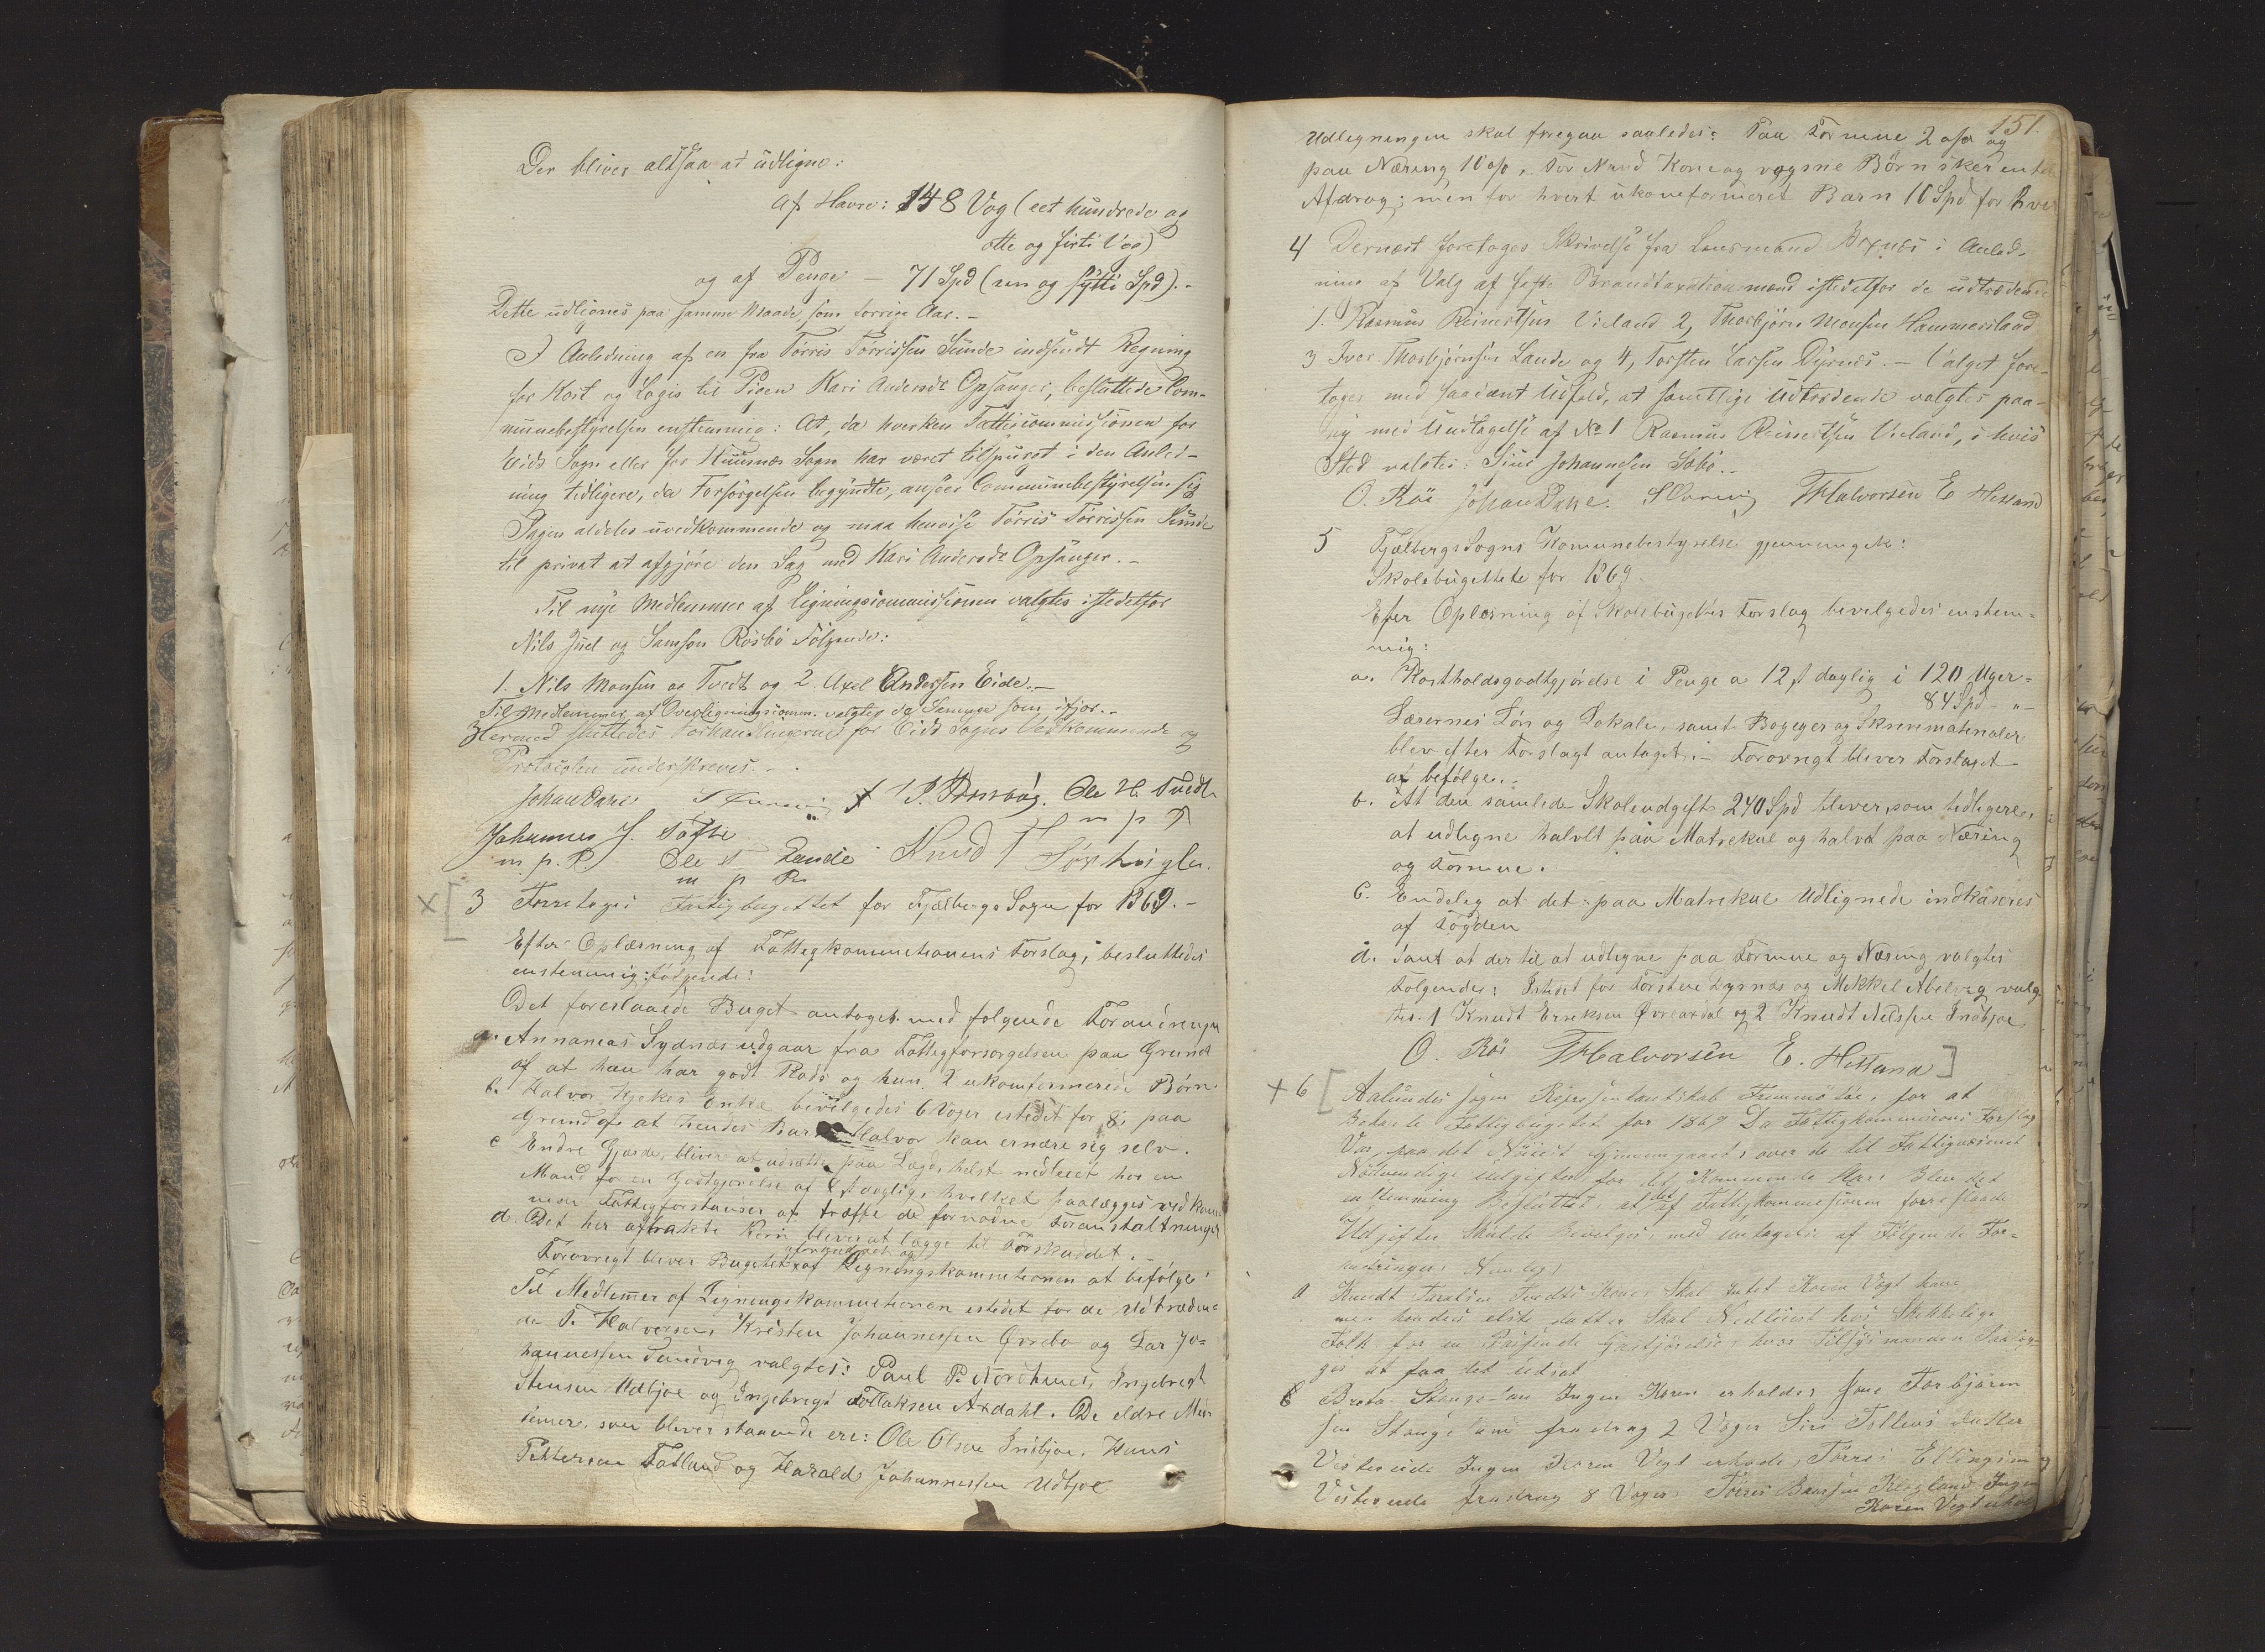 Der bliver altsaa at udligne:
Af Havre: 148 Vog (eet hundrede og
otte og firti Vog)
og af Penge – 71 Spd (een og sytti Spd).-
Dette udlignes paa samme Maade som forrige Aar.-
I Anledning af en fra Tørris Tørrissen Sunde indsendt Regning
for Kost og Logis til Pigen Kari Andersdr Opsanger, besluttede Com-
munebestyrelsen enstemmig: At, da hverken Fattigcommissionen for
Eids Sogn eller for Huusnæs Sogn har været tilspurgt i den Anled-
ning tidligere, da Forsørgelsen begyndte, ansees Communebestyrelsen sig
Sagen aldeles uvedkommende og maa henvise Tørris Tørrissen Sunde
til privat at afgjøre den Sag med Kari Andersdr Opsanger.-
Til nye Medlemmer af Ligningscommissionen valgtes istedetfor
Nils Juel og Samson Røsbø Følgende:
1. Nils Monsen og Tvedt og 2. Axel Andersen Eide.-
Til Medlemmer af Overligningscomm. valgtes de Samme som ifjor.-
Hermed sluttedes Forhandlingerne for Eids Sogns Vedkommende og
Protocolen underskreves.-
Johan Dahl Ole H. Tvedt
m p P
Johannes J. Tofte
m. p. P. Ole Lande Knud T
m p P
3 Foretoges Fattigbugettet for Fjelbergs Sogn for 1869.-
Efter Oplæsning af Fattigkommitionens Forslag, besluttedes
enstemmig følgende:
Det foreslaaede Buget antages med følgende Forandringer
a. Annanias Sydnæs udgaar fra Fattigforsørgelsen paa Grund
af at han har godt Raad og kun 2 ukomfermerede Børn
b. Halvor Hjekes Enke bevilgedes 6 Voger istedet for 8, paa
Grund af at hendes Barn Halvor kan ernære sig selv.
c Endre Gjerde, bliver at udsætte paa Lægd, helst nedleiet hos en
Mand for en Godtgjørelse af 8 β daglig, hvilket paalægges vedkom-
mende Fattigforstander at træffe de fornødne Foranstaltninger
d. Det her aftrakte Korn bliver at lægge til Forskuddet.
Forøvrigt bliver Bugettet af Ligningskommitionen at befølge
Til Medlemmer af Ligningskommitionen istedet for de udtræden-
de T. Halvorsen, Kristen Johannessen Øvrebø og Lar Jo-
hannessen Sandvig valgtes: Paul P. Nordhuus, Ingebregt
Stensen Udbjoe og Ingebregt Tollaksen Axdahl. De eldre Med-
lemmere, som bliver staaende ere: Ole Olsen Insbjoe, Hans
Pettersen Fatland og Harald Johannessen Udbjoe
151.
Udlegningen skal foregaa saaledes: Paa Formue 2 o/o og
paa Næring 10 o/o, For Mand Kone og vogsne Børn sker intet
Afdrag; men for hvert ukoneformeret Barn 10 Spd for hver
4 Dernæst foretoges Skrivelse fra Lensmand Boxnes i Anled-
ning af Valg af faste Brandtaxationsmænd istedetfor de udtrædende
1. Rasmus Reinertsen Vieland 2, Thorbjørn Monsen Hammersland
3 Iver Thorbjørnsen Lande og 4, Torsten Larsen Dyrnes.- Valget fore-
toges med saadant Udfald, at samtlige Udtrædende valgtes paa-
ny med Undtagelse af No 1 Rasmus Reinertsen Vieland, i hvis
Sted valgtes: Siur Johannesen Sæbø.-
O. Røe Johan Dahl. T Halvorsen E Hetland
5 Fjelbergs Sogns Komunebestyrelse gjennemgik:
Skolebugettete for 1869.
Efter Oplæsning af Skolebugettes Forslag bevilgedes enstem-
mig:
a. Kostholdsgodtgjørelse i Penge a 12 β daglig i 120 Uger =
84 Spd - " -
Lærernes Løn og Lokale, samt Bogeger og Skrivematerialer
blev efter Forslagt antaget.- Forøvrigt bliver Forslaget
at befølge.-
b. At den samlede Skoleudgift 240 Spd bliver, som tidligere,
at udligne halvt paa Matrekul og halvt paa Næring
og Formue.
c. Endelig at det paa Matrekul Udlignede indkaseres
af Fogden
d. Samt at der til at udligne paa Formue og Næring valgtes
Følgendes: Istedet for Torsten Dyrnæs og Mikkel Abelvig valg-
tes. 1 Knudt Erreksen Øvreardal og 2 Knudt Nelssen Insbjoe
O. Røe T Halvorsen E. Hetland
6 Aalundes sogn Representantskab Fremmøtte, for at
Bekante Fattigbugetet for 1869 Da Fattigkommisions Forslag
Var paa det Nøieste Gjennemgaaet, over de til Fattigvæsenet
Nødvendige Udgifter for det Kommende Aar Blev det
enstemmig Besluttet, at det af Fattigkommesionen foreslaaede
Udgifter Skulde Bevilges, med untagelse af Følgende For-
andringer, Nemlig:
a Knudt Tvedts Kone, Skal Intet Koren Vægt have
men hendes elste datter Skal Nedleiest hos Skikkelige
Folk for en Passende Godtjørelse,
ges at faa det udsat
b Stangeland Ingen Koren erholder
Stangeland fradrag 2 Voger Siri Tollevs datter
Vestvende Ingen Koren Vegt erholde, Tørris Ellingsen
Vestvende fradrag 8 Voger. Tørris Ingen
Koren Vegt